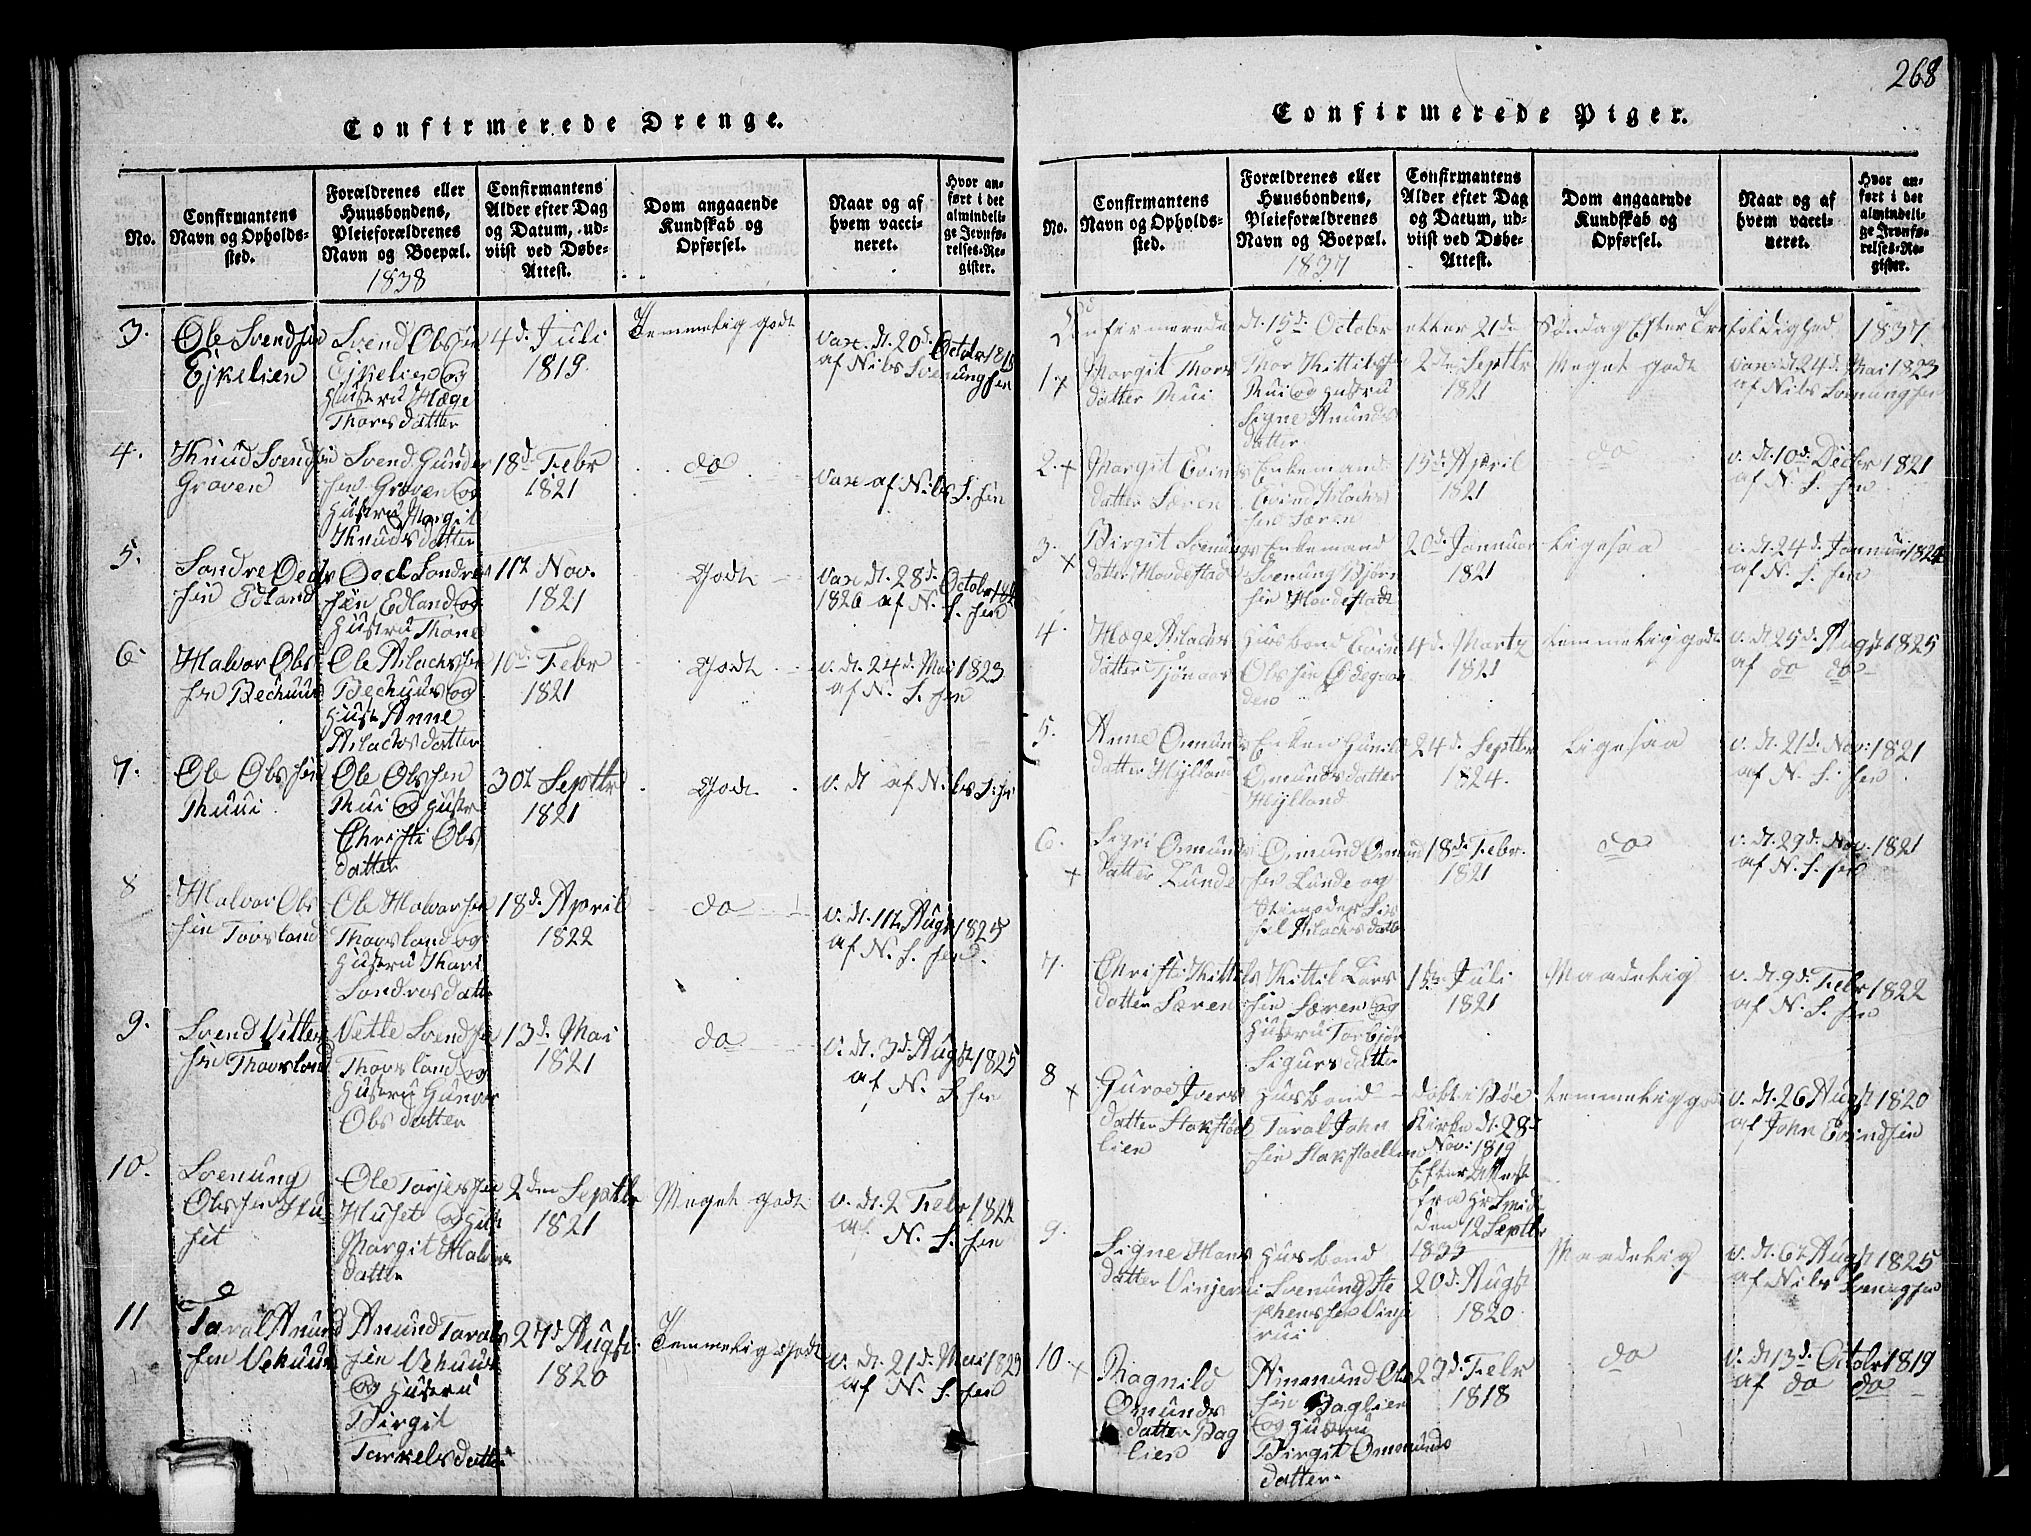 268
Confirmerede Drenge.
No.
Confirmantens Navn og Opholdssted.
Forældrenes eller Huusbondens, Pleieforældrenes Navn og Boepæl.
1838
Confirmantens Alder efter Dag og Datum, udviist ved Døbe-Attest.
Dom angaaende Kundskab og Opførsel.
Naar og af hvem vaccineret.
Hvor anført i det almindelige Jevnførelses-Register.
3.
Ole Svendsen
Ejkelien
Svend Olsen
Ejkelien og
Hustru Hæge
Thorsdatter
4d. Juli
1819.
Temmelig godt
Vax. dt. 20d. Octobr 1819
af Nils Svenungsen
4.
Knud Svendsen
Groven
Svend Gunder
sen Groven og
Hustru Margit
Knudsdatter
18d. Febr
1821
do
Vax af Nils S. sen
5.
Sondre Oeds
sen Edland
Oed Sondres
sen Edland og
Hustru Thone
11t Nov.
1821
Godt
Vax dt. 28d. Octobr
1826 af N. S. sen
6.
Halvor Ols
sen Bechuus
Ole Aslachsen
Bechuus og
Hust Anne
Aslachsdatter
10d Febr
1821
Godt
v. dt. 24d. Mai 1823
af N. S. sen
7.
Ole Olssen
Ruui
Ole Olssen
Rui og Hustr
Christi Ols
datter
30t Septbr
1821
Godt
v. dt af Nils S. sen
8
Halvor Ols
sen Tovsland
Ole Halvorsen
Thovsland og
Hustru Kari
Sondresdattr
18d. April
1822
do
v. dt. 11t Augst 1825
af N. S. sen.
9.
Svend Vetles
sen Thovsland
Vetle Svendsen
Thovsland og
Hustru Gunvor
Olsdatter
13d. Mai
1821
do
v. dt. 3d. Augst 1825
af N. S. sen
10.
Svenung
Olssen Hu
set
Ole Tarjessen
Huset og Hust
Margit Halvors
datter
2den Septbr
1821
Meget godt
v. dt. 2 Febr 1822
af N. S. sen
11
Taral Anund
sen Vehuus
Anund Tarals
sen Vehuus
og Hustru
Birgit
Tarkelsdatter
27d Augst.
1820
Temmelig Godt
v. dt. 21d. Mai 1823
af N. S. sen
Confirmerede Piger.
No.
Confirmantens Navn og Opholdssted.
Forældrenes eller Huusbondens, Pleieforældrenes Navn og Boepæl.
1837
Confirmantens Alder efter Dag og Datum, udviist ved Døbe-Attest.
Dom angaaende Kundskab og Opførsel.
Naar og af hvem vaccineret.
Hvor anført i det almindelige Jevnførelses-Register.
Confermerede dt. 15d. Octobr etter 21de Søndag Efter Trefoldighed 1837.
1. +
Margit Thors
datter Rui
Thor Kittilss
Rui og Hustru
Signe Anunds
datter
2den Septbr
1821
Meget godt
Vax dt. 24d. Mai 1823
af Nils Svenungsen
2. +
Margit Evinds
datter Særen
Enkemand
Evind Aslachs
sen Særen
15d April
1821
do
v. dt. 10d. Decbr 1821
af N. S. sen
3. +
Birgit Svenungs
datter Hovdestad
Enkemand
Svenung Bjørn
sen Hovdestadt
20d. Jannuar
1821
Ligesaa
v. dt. 24d. Januar 1824
af N. S. sen
4.
Hæge Aslachs
datter Tjønaas
Husbond Evin
Olssen Ødegaar
den
4d. Martz
1821
temmelig godt
v. dt. 25d. Augst 1825
af do do
5.
Anne Omunds
datter Hylland
Enken Gunild
Omundsdatter
Hylland
24d. Septbr
1824.
Ligesaa
v. dt. 21d. Nov: 1821
af N. S. sen
6. +
Sigri Omunds
datter Lunde
Omund Omund
sen Lunde og
Stimoder Sis
sel Aslachsdattr
18d. Febr.
1821
do
v. dt. 29d. Nov: 1821
af N. S. sen
7.
Christi Kittils
datter Særen
Kittil Lars
sen Særen og
Hustru Torbjør
Sigursdatter
1ste Juli
1821
Maadelig
v. dt. 9d. Febr 1822
af N. S. sen
8 +
Guroe Ivers
datter Stokstød
lien
Husbond
Taral John
sen Stokstoellien
døbt i Bøe
Kirke dt. 28d
Nov: 1819
Efter Attest
fra Hr Smidt
den 12 Septbr
1835
temmelig god
v. dt. 26 Augst 1820
af John Evindsen
9.
Signe Hans
datter Vinjerui
Husbond
Svenung Ste
phenssen Vinje
rui
20d. Augst
1820.
Maadelig
v. dt. 6t. Augst 1825
af Nils Svenungsen
10. +
Ragnild
Omunds
datter Bag
lien
Ammund Ols
sen Baglien
og Hustru
Birgit Ommunds
datter.
23d. Febr
1818
do
v. dt 13d. Octobr 1819
af do do